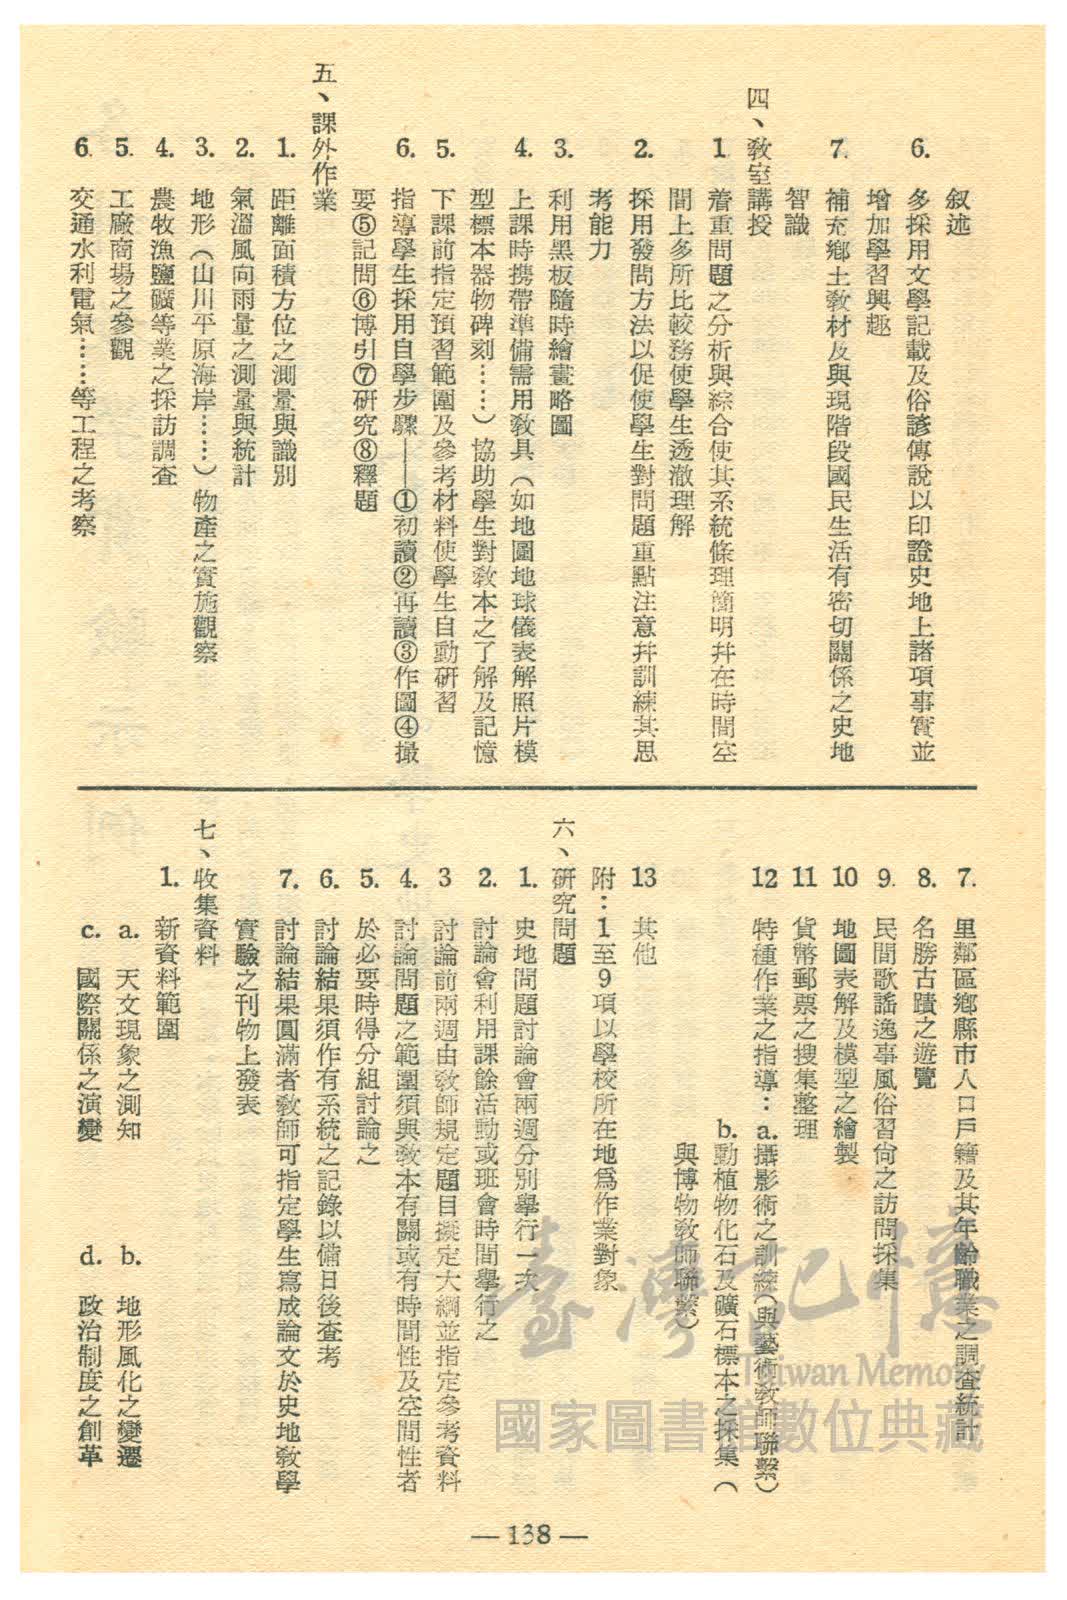 叙述
6. 多採用文學記載及俗諺傳說以印證史地上諸項事實並
增加學習興趣
7. 補充鄉土教材及與現階段國民生活有密切關係之史地
智識
四、教室講授
1 着重問題之分析與綜合使其系統條理簡明幷在時間空
間上多所比較務使學生透澈理解
2. 採用發問方法以促使學生對問題重點注意幷訓練其思
考能力
3. 利用黑板隨時繪畫略圖
4. 上課時携帶準備需用教具（如地圖地球儀表解照片模
型標本器物碑刻……）協助學生對教本之了解及記憶
5. 下課前指定預習範圍及參考材料使學生自動研習
6. 指導學生採用自學步驟——①初讀②再讀③作圖④撮
要⑤記問⑥博引⑦研究⑧釋題
五、課外作業
1. 距離面積方位之測量與識別
2. 氣溫風向雨量之測量與統計
3. 地形（山川平原海岸……）物產之實施觀察
4. 農牧漁鹽礦等業之採訪調查
5. 工廠商場之參觀
6. 交通水利電氣……等工程之考察
7. 里鄰區鄉縣市人口戶籍及其年齡職業之調查統計
8. 名勝古蹟之遊覽
9. 民間歌謠逸事風俗習尙之訪問採集
10 地圖表解及模型之繪製
11 貨幣郵票之搜集整理
12 特種作業之指導：a.攝影術之訓練（與藝術教師聯繫）
b.動植物化石及礦石標本之採集（
與博物教師聯繫）
13 其他
附：1至9項以學校所在地爲作業對象
六、研究問題
1. 史地問題討論會兩週分別舉行一次
2. 討論會利用課餘活動或班會時間舉行之
3 討論前兩週由教師規定題目擬定大綱並指定參考資料
4. 討論問題之範圍須與教本有關或有時間性及空間性者
5. 於必要時得分組討論之
6. 討論結果須作有系統之記錄以備日後查考
7. 討論結果圓滿者教師可指定學生寫成論文於史地教學
實驗之刊物上發表
七、收集資料
1. 新資料範圍
a. 天文現象之測知 b. 地形風化之變遷
c. 國際關係之演變 d. 政治制度之創革
— 138 —
臺灣記憶
Taiwan Memory
國家圖書館數位典藏